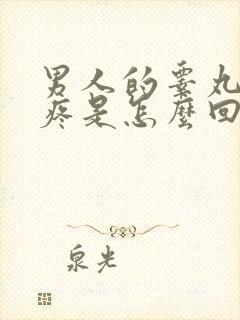 男人的睾丸
疼是怎麼回
泉光